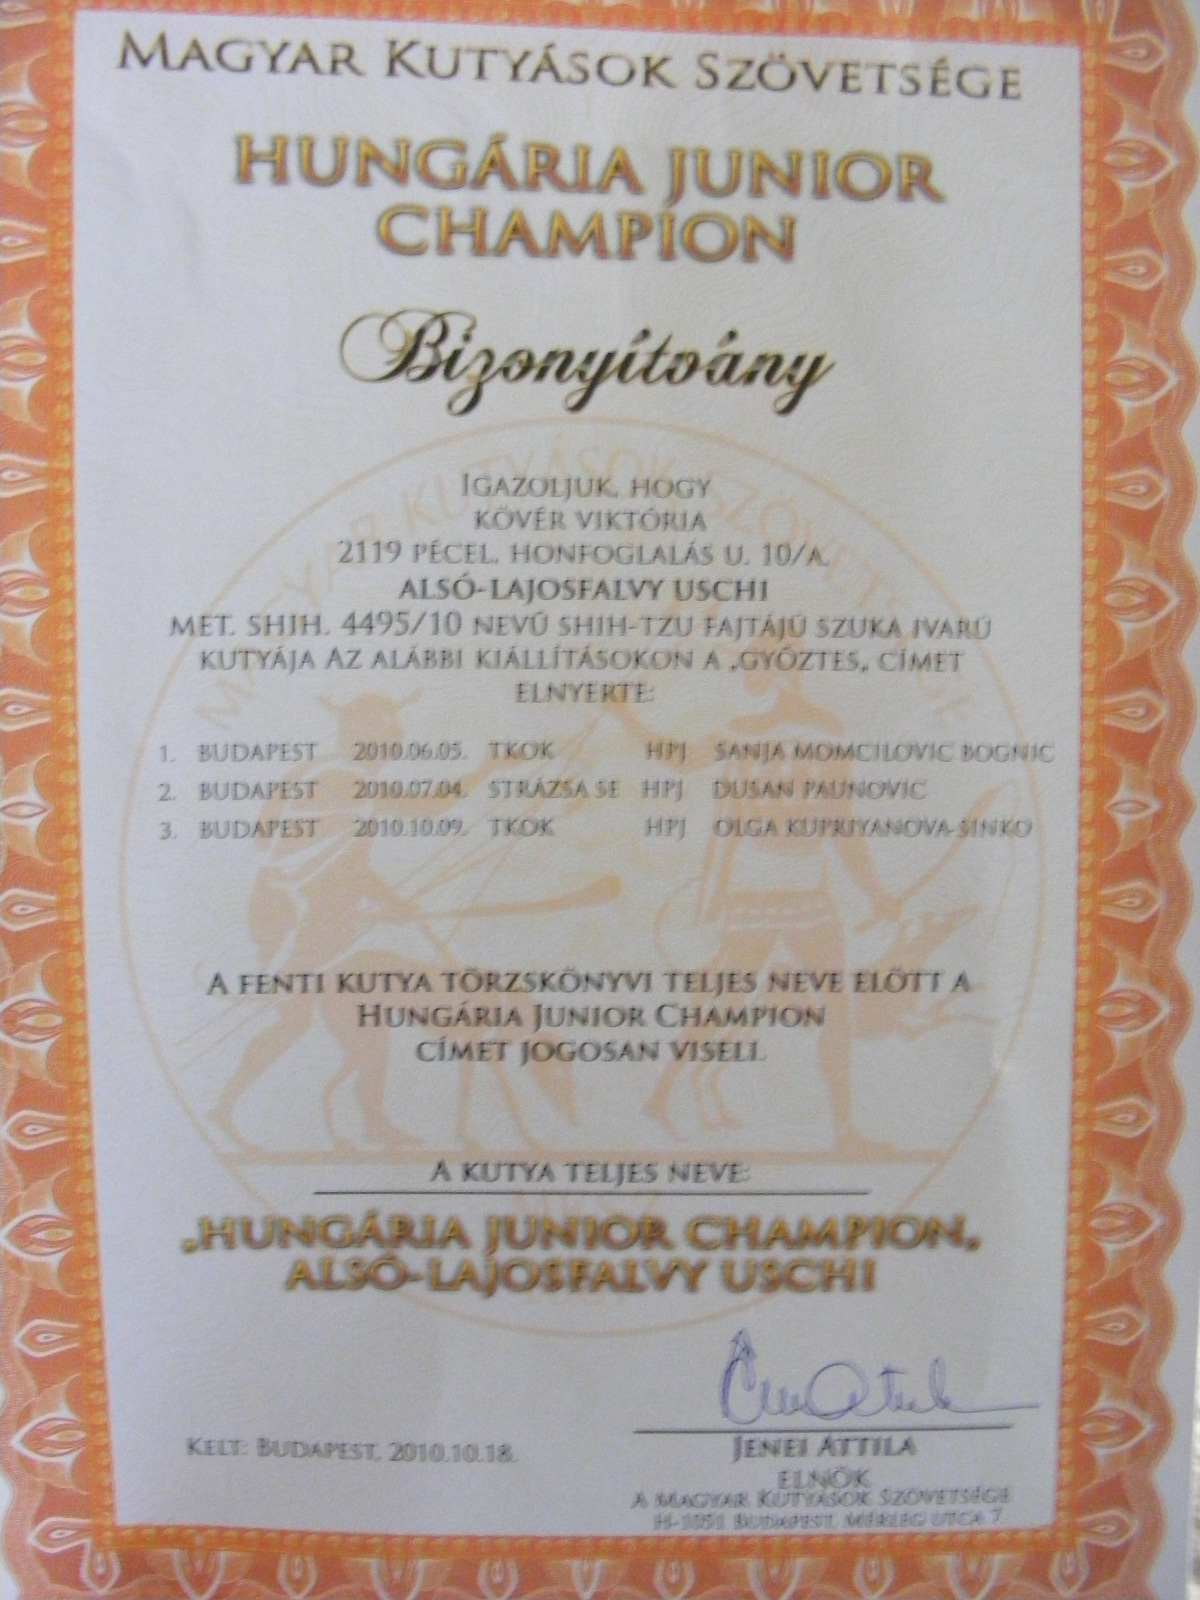 MAGYAR KUTYÁSOK SZÖVETSÉGE
HUNGÁRIA JUNIOR
CHAMPION
Bizonyítvány
IGAZOLJUK, HOGY
KÖVÉR VIKTÓRIA
2119 PÉCEL, HONFOGLALÁS U. 10/A.
ALSÓ-LAJOSFALVY USCHI
MET. SHIH. 4495/10 NEVŰ SHIH-TZU FAJTÁJÚ SZUKA IVARÚ
KUTYÁJA AZ ALÁBBI KIÁLLÍTÁSOKON A „GYŐZTES„ CÍMET
ELNYERTE:
1. BUDAPEST 2010.06.05. TKOK HPJ SANJA MOMCILOVIC BOGNIC
2. BUDAPEST 2010.07.04. STRÁZSA SE HPJ DUSAN PAUNOVIC
3. BUDAPEST 2010.10.09. TKOK HPJ OLGA KUPRIYANOVA-SINKO
A FENTI KUTYA TÖRZSKÖNYVI TELJES NEVE ELŐTT A
HUNGÁRIA JUNIOR CHAMPION
CÍMET JOGOSAN VISELI.
A KUTYA TELJES NEVE:
„HUNGÁRIA JUNIOR CHAMPION„
ALSÓ-LAJOSFALVY USCHI
KELT: BUDAPEST, 2010.10.18.
JENEI ATTILA
ELNÖK
A MAGYAR KUTYÁSOK SZÖVETSÉGE
H-1051 BUDAPEST, MÉRLEG UTCA 7.
MAGYAR KUTYÁSOK SZÖVETSÉGE